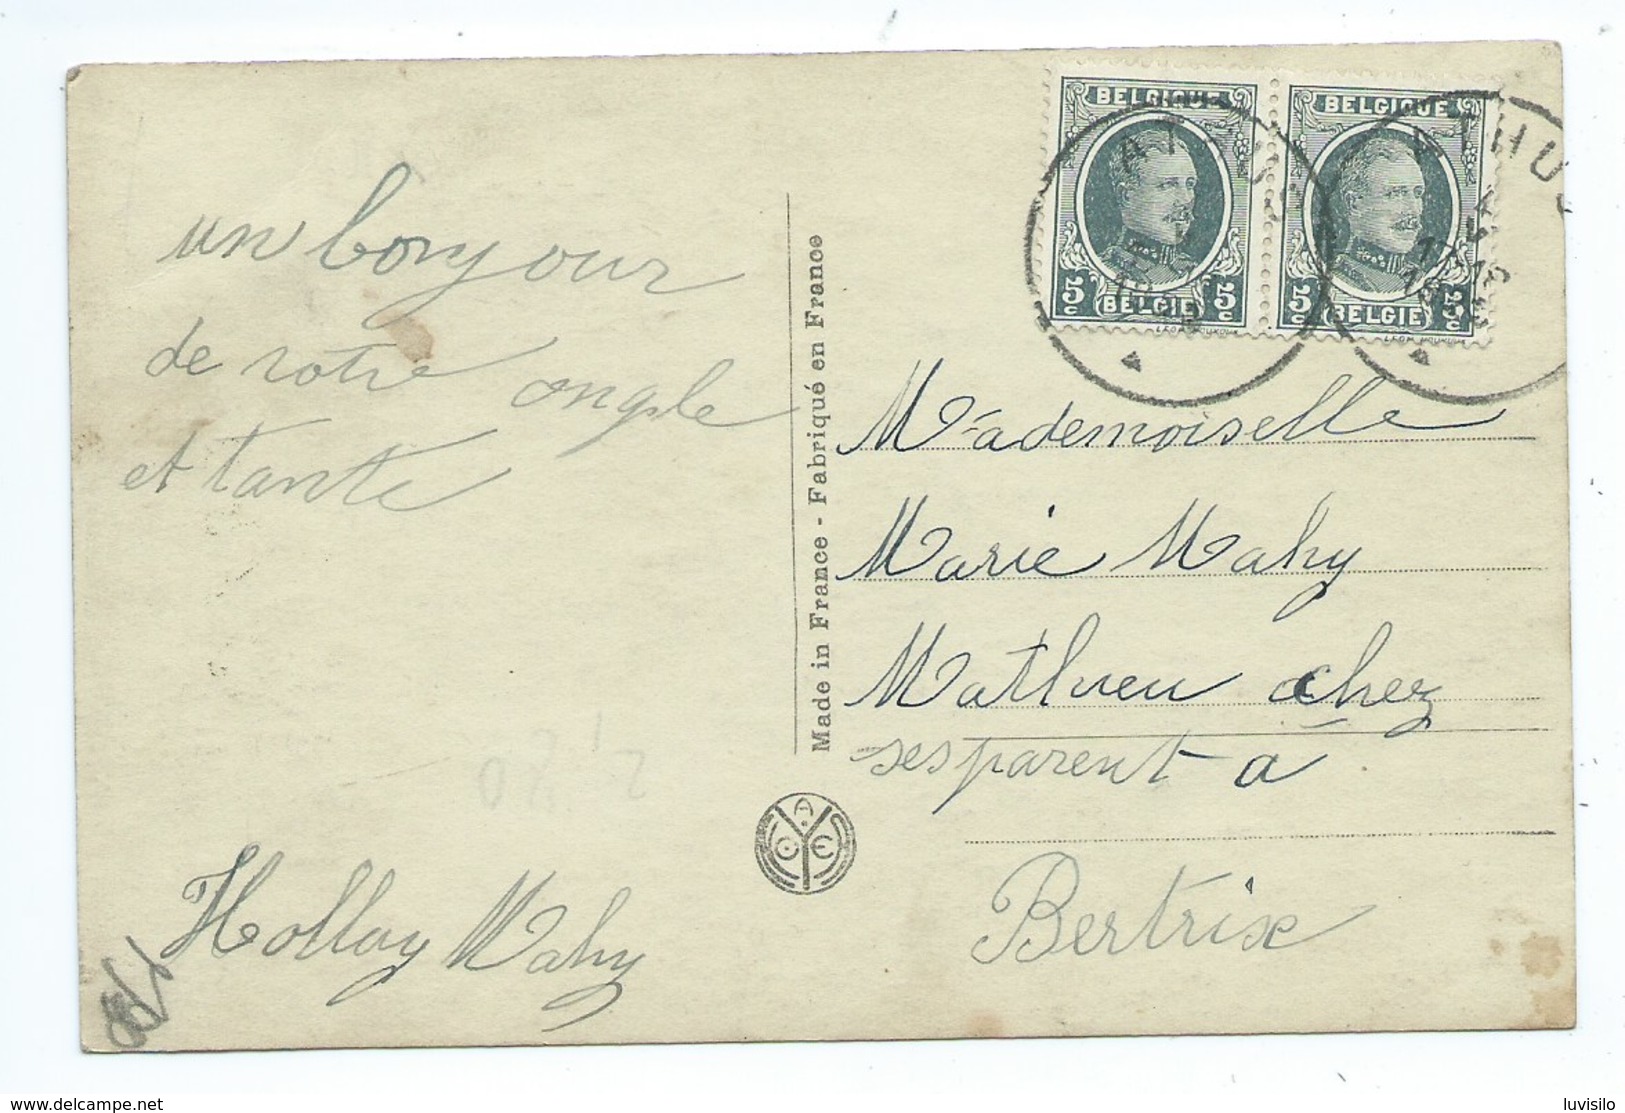 un bonjour
de votre ongle
et tante
Hollay Mahy
Made in France - Fabriqué en France
BELGIQUE
5c BELGIE 5c
BELGIQUE
5c BELGIE 5c
ATHUS
ATHUS
Mademoiselle
Marie Mahy
Mathueu chez
ses parent a
Bertrix
delcampe.net
luvisilo